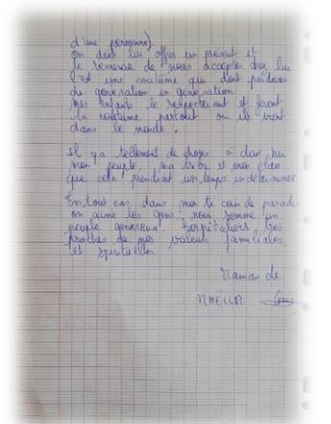 d'une personne)
on doit lui offrir un present et
le remercie de nous accepter chez lui
C'est une coutume qui doit perdurer
de generation en generation
Mes enfants le respecteront et feront
la coutume partout ou ils iront
dans le monde.
Il y a tellement de choses a dire sur
mon peuple, ma tribu et mon clan
que cela prendrait un temps indeterminée
En tout cas dans mon ti coin de paradis
on aime les gens, nous somme un
peuple genereux, hospitaliers, très
proches de nos valeurs familiales
et spirituelles.
Maman de